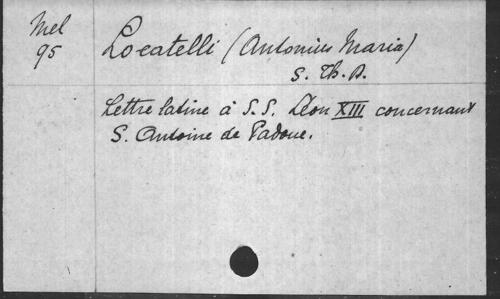 Mel
95
Locatelli (Antonius Maria)
S. Th. D.
Lettre latine à S. S. Léon XIII concernant
S. Antoine de Padoue.